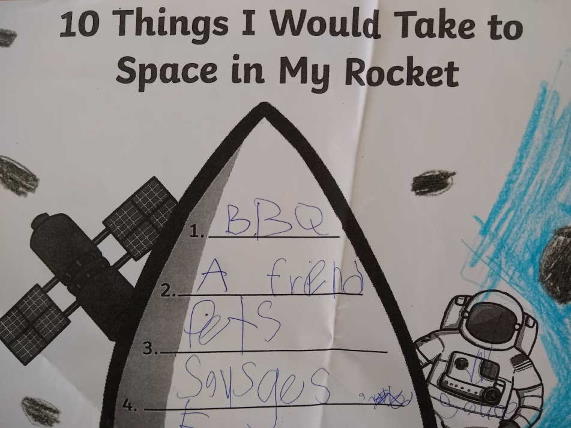 10 Things I Would Take to
Space in My Rocket
1. BBQ
2. A friend
3. Pets
4. Sausges